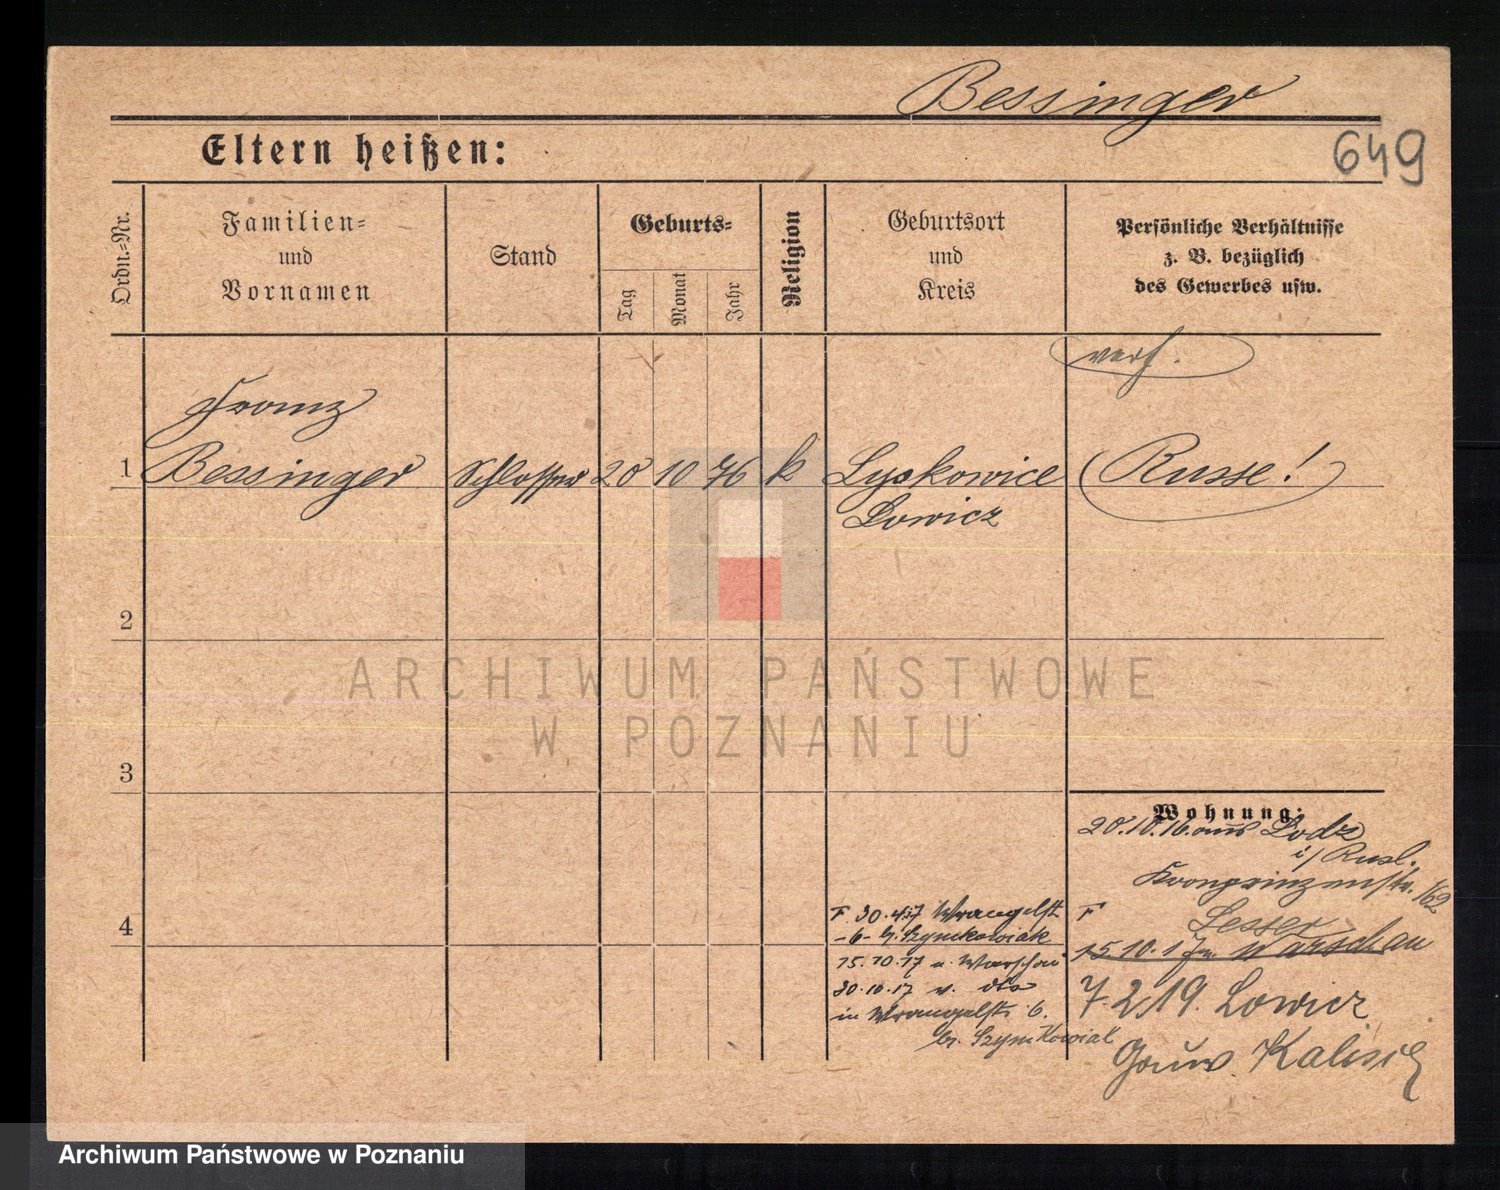 Bessinger
649
Eltern heißen:
Ordn.=Nr.
Familien=
und
Vornamen
Stand
Geburts=
Tag
Monat
Jahr
Religion
Geburtsort
und
Kreis
Persönliche Verhältnisse
z. B. bezüglich
des Gewerbes usw.
verh.
Franz
1 Bessinger Schlosser 20 10 76 k Lyskowice Russe!
Lowicz
2
3
4
Wohnung:
20.10.16. aus Lodz
i/ Rusl.
Kronprinzenstr. 162
F Lesser
15.10.17 Warschau
7.2.19. Lowicz
Gouv. Kalisch
F 30.4.17 Wrangelst.
-6- b. Szymkowiak
15.10.17 n. Warschau
30.10.17 v. da
in Wrangelstr. 6.
b. Szymkowiak
ARCHIWUM PAŃSTWOWE
W POZNANIU
Archiwum Państwowe w Poznaniu